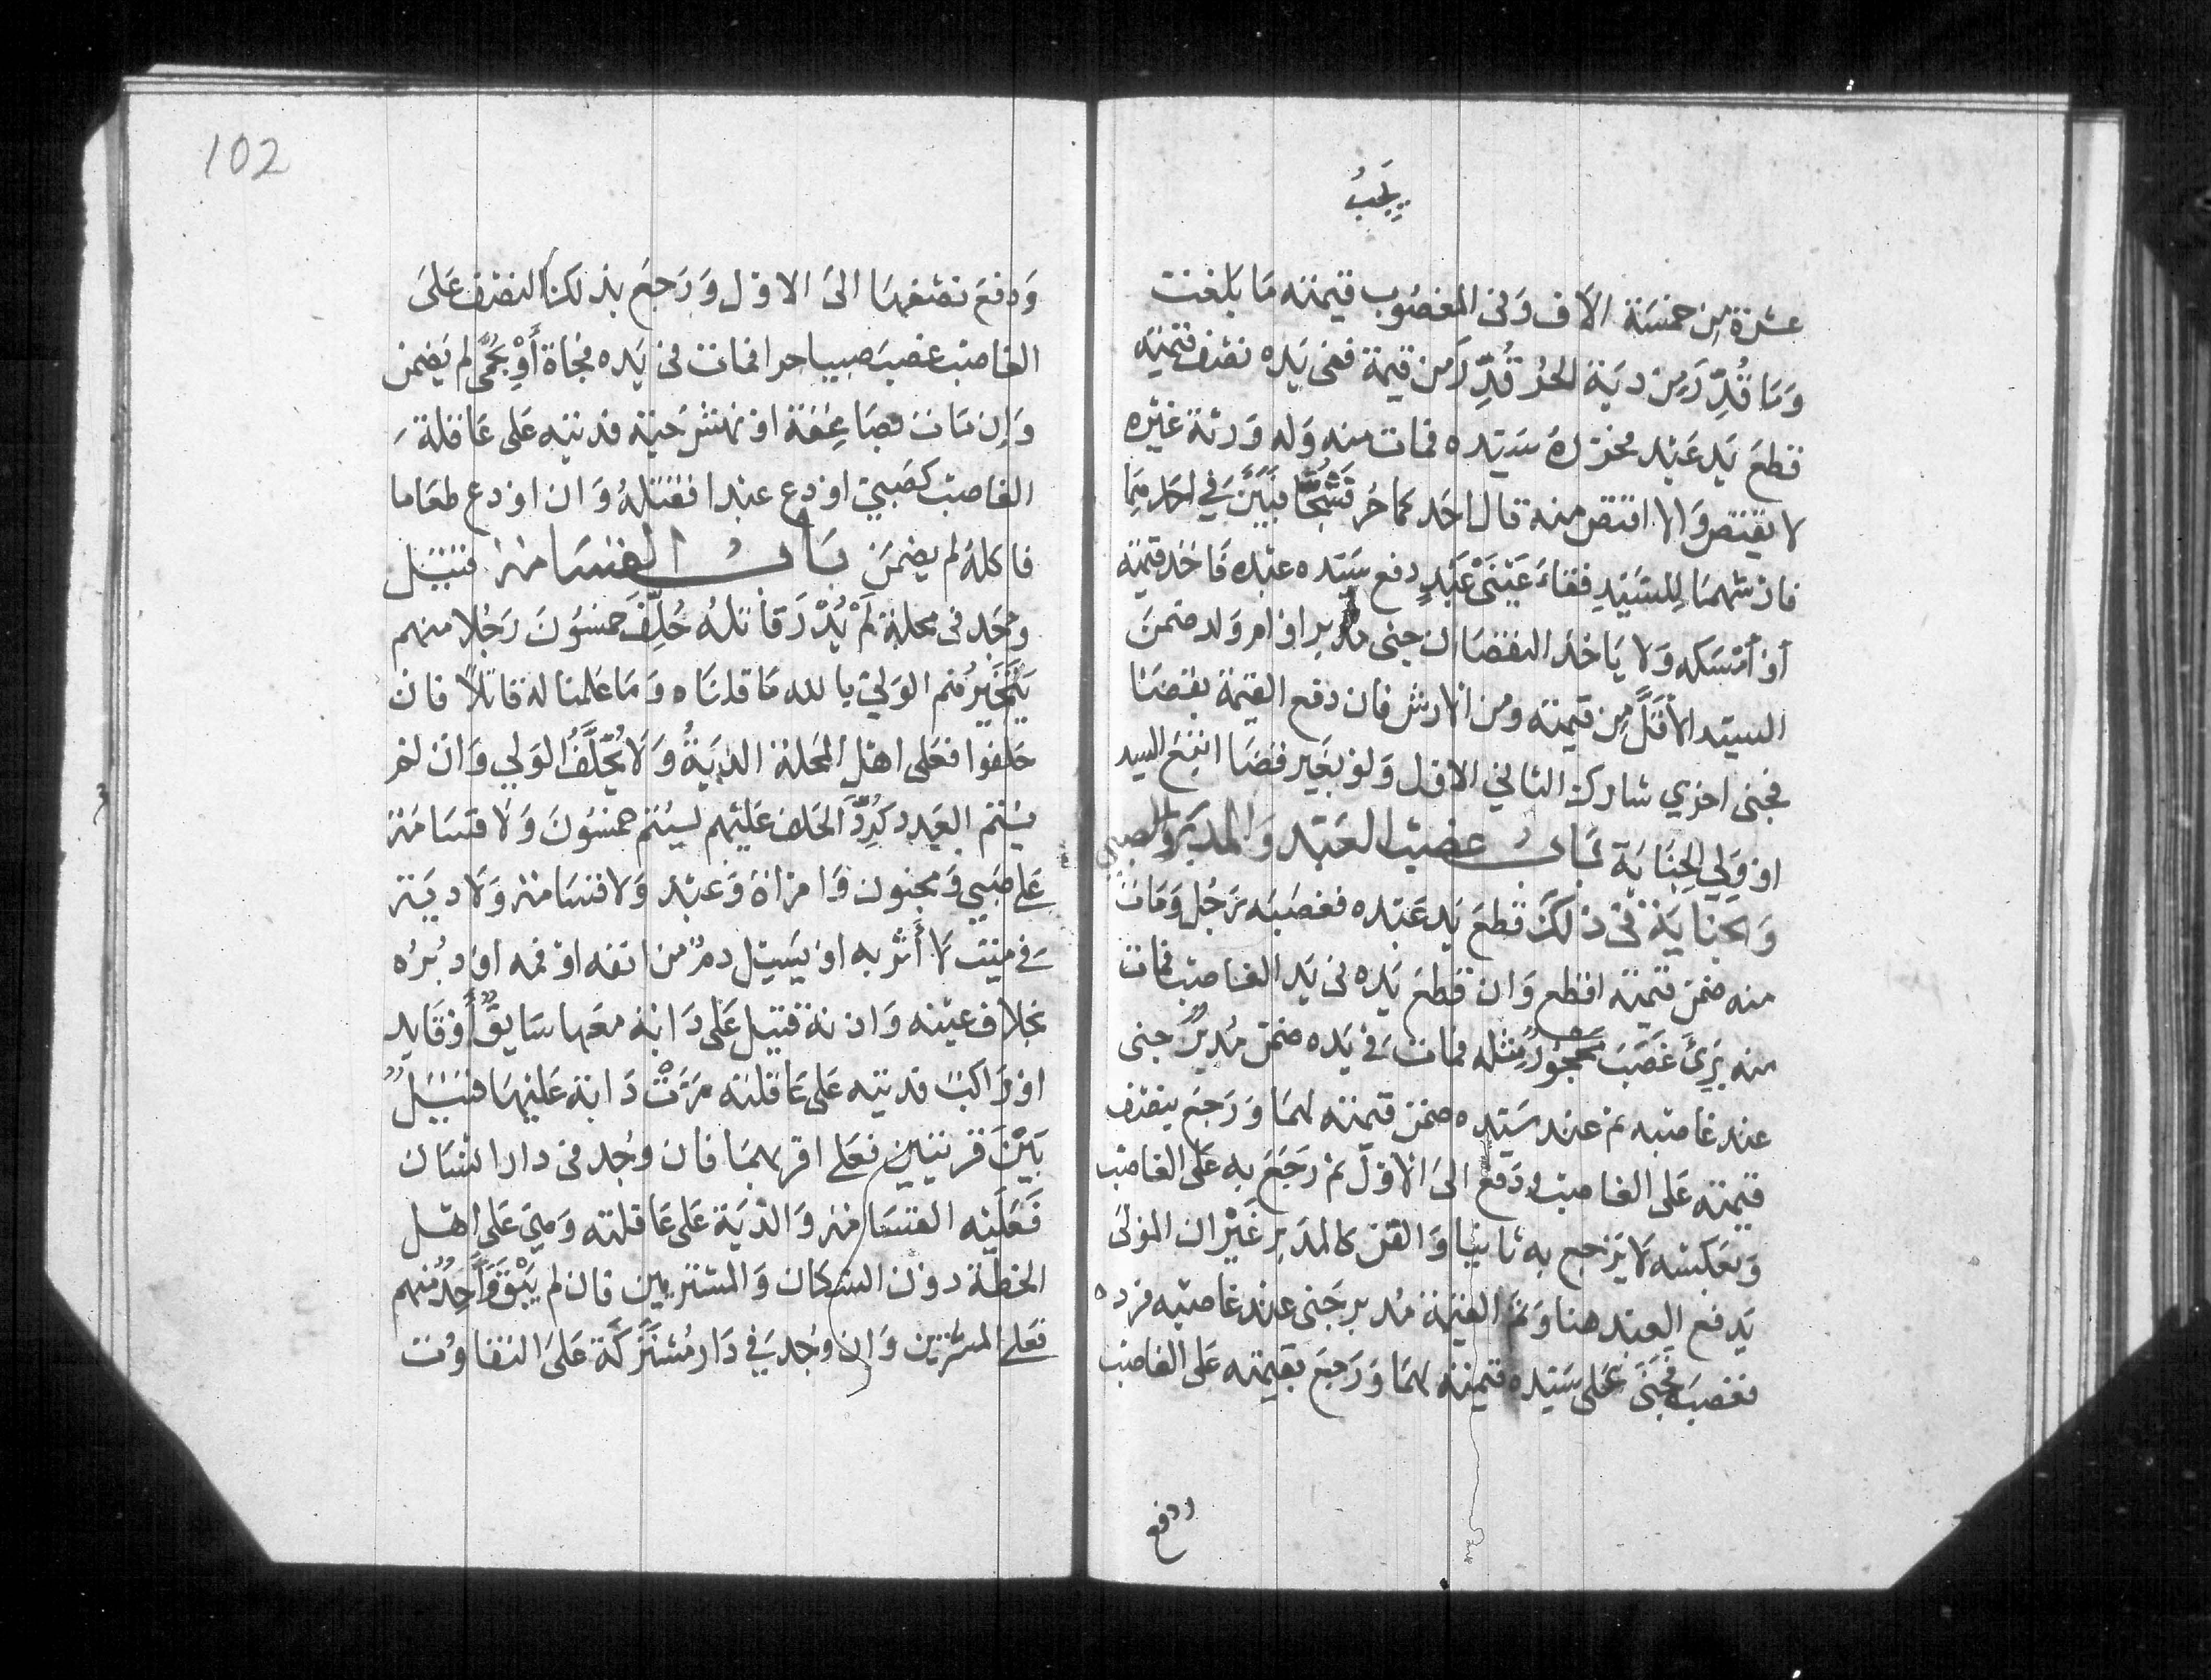 يجب
عشرة من خمسة الاف وفى المغصوب قيمته ما بلغت
وَمَا قُدِّرَ مِن دية الحر قُدِّرَ من قيمة ففى يده نصف قيمته
قطع يد عبد فحرره سيده فمات منه وله ورثة غيره
لا يقتص والا اقتص منه قال احدكما حر فشجا فبين في احدهما
فارشهما للسيد فقاء عَيْنَىْ عَبْدٍ دفع سيده عبده واخذ قيمته
أو أمسكه ولا ياخذ النقصان جنى مدبر او ام ولد ضمن
السيد الأقل مِن قيمته ومن الارش فان دفع القيمة بقضا
فجنى اخري شارك الثاني الاول ولو بغير قضا اتبع السيد
او ولي الجناية باب غصب العبد والمدبر والصبي
والجناية فى ذلك قطع يد عبده فغصبه رجل ومات
منه ضمن قيمته اقطع وان قطع يده فى يد الغاصب فمات
منه برئ غصب محجور مثله فمات في يده ضمن مدبر جنى
عند غاصبه ثم عند سيده ضمن قيمته لهما ورجع بنصف
قيمته على الغاصب ودفع الى الاول ثم رجع به على الغاصب
وبعكسه لا يرجع به ثانيا والقن كالمدبر غير ان المولى
يدفع العبد هنا وثم القيمة مدبر جنى عند غاصبه فرده
فغصب فجنى على سيده قيمته لهما ورجع بقيمته على الغاصب
ودفع
102
وَدفع نصفها الى الاول وَرَجع بذلك النصف على
الغاصب غصب صبيا حرا فمات فى يده فجاة أو بحمى لم يضمن
وَإن مات بصاعقة او نهش حية فديته على عاقلة
الغاصب كصبي اودع عبدا فقتله وان اودع طعاما
فاكله لم يضمن باب القسامة قتيل
وجد فى محلة لم يُدْرَ قاتله حُلِّفَ خمسون رجلا منهم
يتخيرهم الولي بالله ما قتلناه وما علمنا له قاتلا فان
حلفوا فعلى اهل المحلة الدية ولا يُحَلَّفُ الولي وان لم
يتم العدد كرر الحلف عليهم ليتم خمسون ولا قسامة
على صبي ومجنون وامراة وعبد ولا قسامة ولا دية
في ميت لا أثر به او يسيل دم من انفه او فمه او دبره
بخلاف عينه واذنه قتيل على دابة معها سايق أو قايد
او راكب فديته على عاقلته مرت دابة عليها قتيل
بَيْنَ قريتين فعلى اقربهما فان وجد فى دار انسان
فَعَلَيْه القسامة والدية على عاقلته وهي على اهل
الخطة دون السكان والمشترين فان لم يبق واحد منهم
فعلى المشترين وان وجد في دار مشتركة على التفاوت